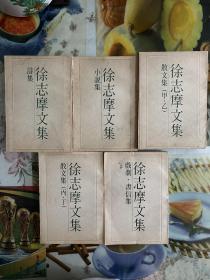 徐志摩文集
詩集
徐志摩文集
小說集
徐志摩文集
散文集（甲·乙）
徐志摩文集
散文集（丙·丁）
徐志摩文集
戲劇·書信集